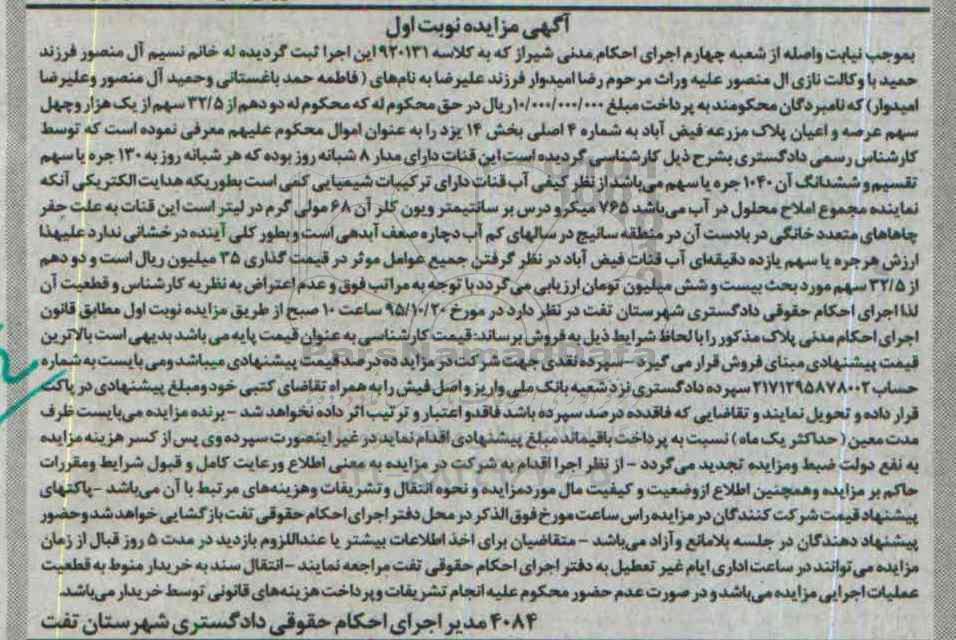 آگهی مزایده نوبت اول
بموجب نیابت واصله از شعبه چهارم اجرای احکام مدنی شیراز که به کلاسه ۹۲۰۱۳۱ این اجرا ثبت گردیده له خانم نسیم آل منصور فرزند
حمید با وکالت نازی ال منصور علیه وراث مرحوم رضا امیدوار فرزند علیرضا به نام‌های (فاطمه حمد باغستانی وحمید آل منصور وعلیرضا
امیدوار) که نامبردگان محکومند به پرداخت مبلغ ۱۰/۰۰۰/۰۰۰/۰۰۰ ریال در حق محکوم له که محکوم له دو دهم از ۳۲/۵ سهم از یک هزار وچهل
سهم عرصه و اعیان پلاک مزرعه فیض آباد به شماره ۴ اصلی بخش ۱۴ یزد را به عنوان اموال محکوم علیهم معرفی نموده است که توسط
کارشناس رسمی دادگستری بشرح ذیل کارشناسی گردیده است این قنات دارای مدار ۸ شبانه روز بوده که هر شبانه روز به ۱۳۰ جره یا سهم
تقسیم و ششدانگ آن ۱۰۴۰ جره یا سهم می‌باشد از نظر کیفی آب قنات دارای ترکیبات شیمیایی کمی است بطوریکه هدایت الکتریکی آنکه
نماینده مجموع املاح محلول در آب می‌باشد ۷۶۵ میکرو درس بر سانتیمتر ویون کلر آن ۶۸ مولی گرم در لیتر است این قنات به علت حفر
چاهاهای متعدد خانگی در بادست آن در منطقه سانیج در سالهای کم آب دچاره صعف آبدهی است وبطور کلی آینده درخشانی ندارد علیهذا
ارزش هر جره یا سهم یازده دقیقه‌ای آب قنات فیض آباد در نظر گرفتن جمیع عوامل موثر در قیمت گذاری ۳۵ میلیون ریال است و دو دهم
از ۳۲/۵ سهم مورد بحث بیست و شش میلیون تومان ارزیابی می‌گردد با توجه به مراتب فوق و عدم اعتراض به نظریه کارشناس و قطعیت آن
لذا اجرای احکام حقوقی دادگستری شهرستان تفت در نظر دارد در مورخ ۹۵/۱۰/۲۰ ساعت ۱۰ صبح از طریق مزایده نوبت اول مطابق قانون
اجرای احکام مدنی پلاک مذکور را با لحاظ شرایط ذیل به فروش برساند: قیمت کارشناسی به عنوان قیمت پایه می باشد بدیهی است بالاترین
قیمت پیشنهادی مبنای فروش قرار می گیرد - سپرده نقدی جهت شرکت در مزایده ده درصد قیمت پیشنهادی میباشد ومی بایست به شماره
حساب ۲۱۷۱۲۹۵۸۷۸۰۰۲ سپرده دادگستری نزد شعبه بانک ملی واریز و اصل فیش را به همراه تقاضای کتبی خود ومبلغ پیشنهادی در پاکت
قرار داده و تحویل نمایند و تقاضایی که فاقدده درصد سپرده باشد فاقد و اعتبار و ترتیب اثر داده نخواهد شد - برنده مزایده می‌بایست ظرف
مدت معین (حداکثر یک ماه) نسبت به پرداخت باقیماند مبلغ پیشنهادی اقدام نماید در غیر اینصورت سپرده وی پس از کسر هزینه مزایده
به نفع دولت ضبط ومزایده تجدید می‌گردد - از نظر اجرا اقدام به شرکت در مزایده به معنی اطلاع ورعایت کامل و قبول شرایط ومقررات
حاکم بر مزایده وهمچنین اطلاع از وضعیت و کیفیت مال مورد مزایده و نحوه انتقال وتشریفات وهزینه‌های مرتبط با آن می‌باشد - پاکتهای
پیشنهاد قیمت شرکت کنندگان در مزایده راس ساعت مورخ فوق الذکر در محل دفتر اجرای احکام حقوقی تفت بازگشایی خواهد شد وحضور
پیشنهاد دهندگان در جلسه بلامانع وآزاد می‌باشد - متقاضیان برای اخذ اطلاعات بیشتر یا عنداللزوم بازدید در مدت ۵ روز قبال از زمان
مزایده می توانند در ساعت اداری ایام غیر تعطیل به دفتر اجرای احکام حقوقی تفت مراجعه نمایند - انتقال سند به خریدار منوط به قطعیت
عملیات اجرایی مزایده می‌باشد و در صورت عدم حضور محکوم علیه انجام تشریفات وپرداخت هزینه‌های قانونی توسط خریدار می‌باشد.
۴۰۸۴ مدیر اجرای احکام حقوقی دادگستری شهرستان تفت
ParsNamadData